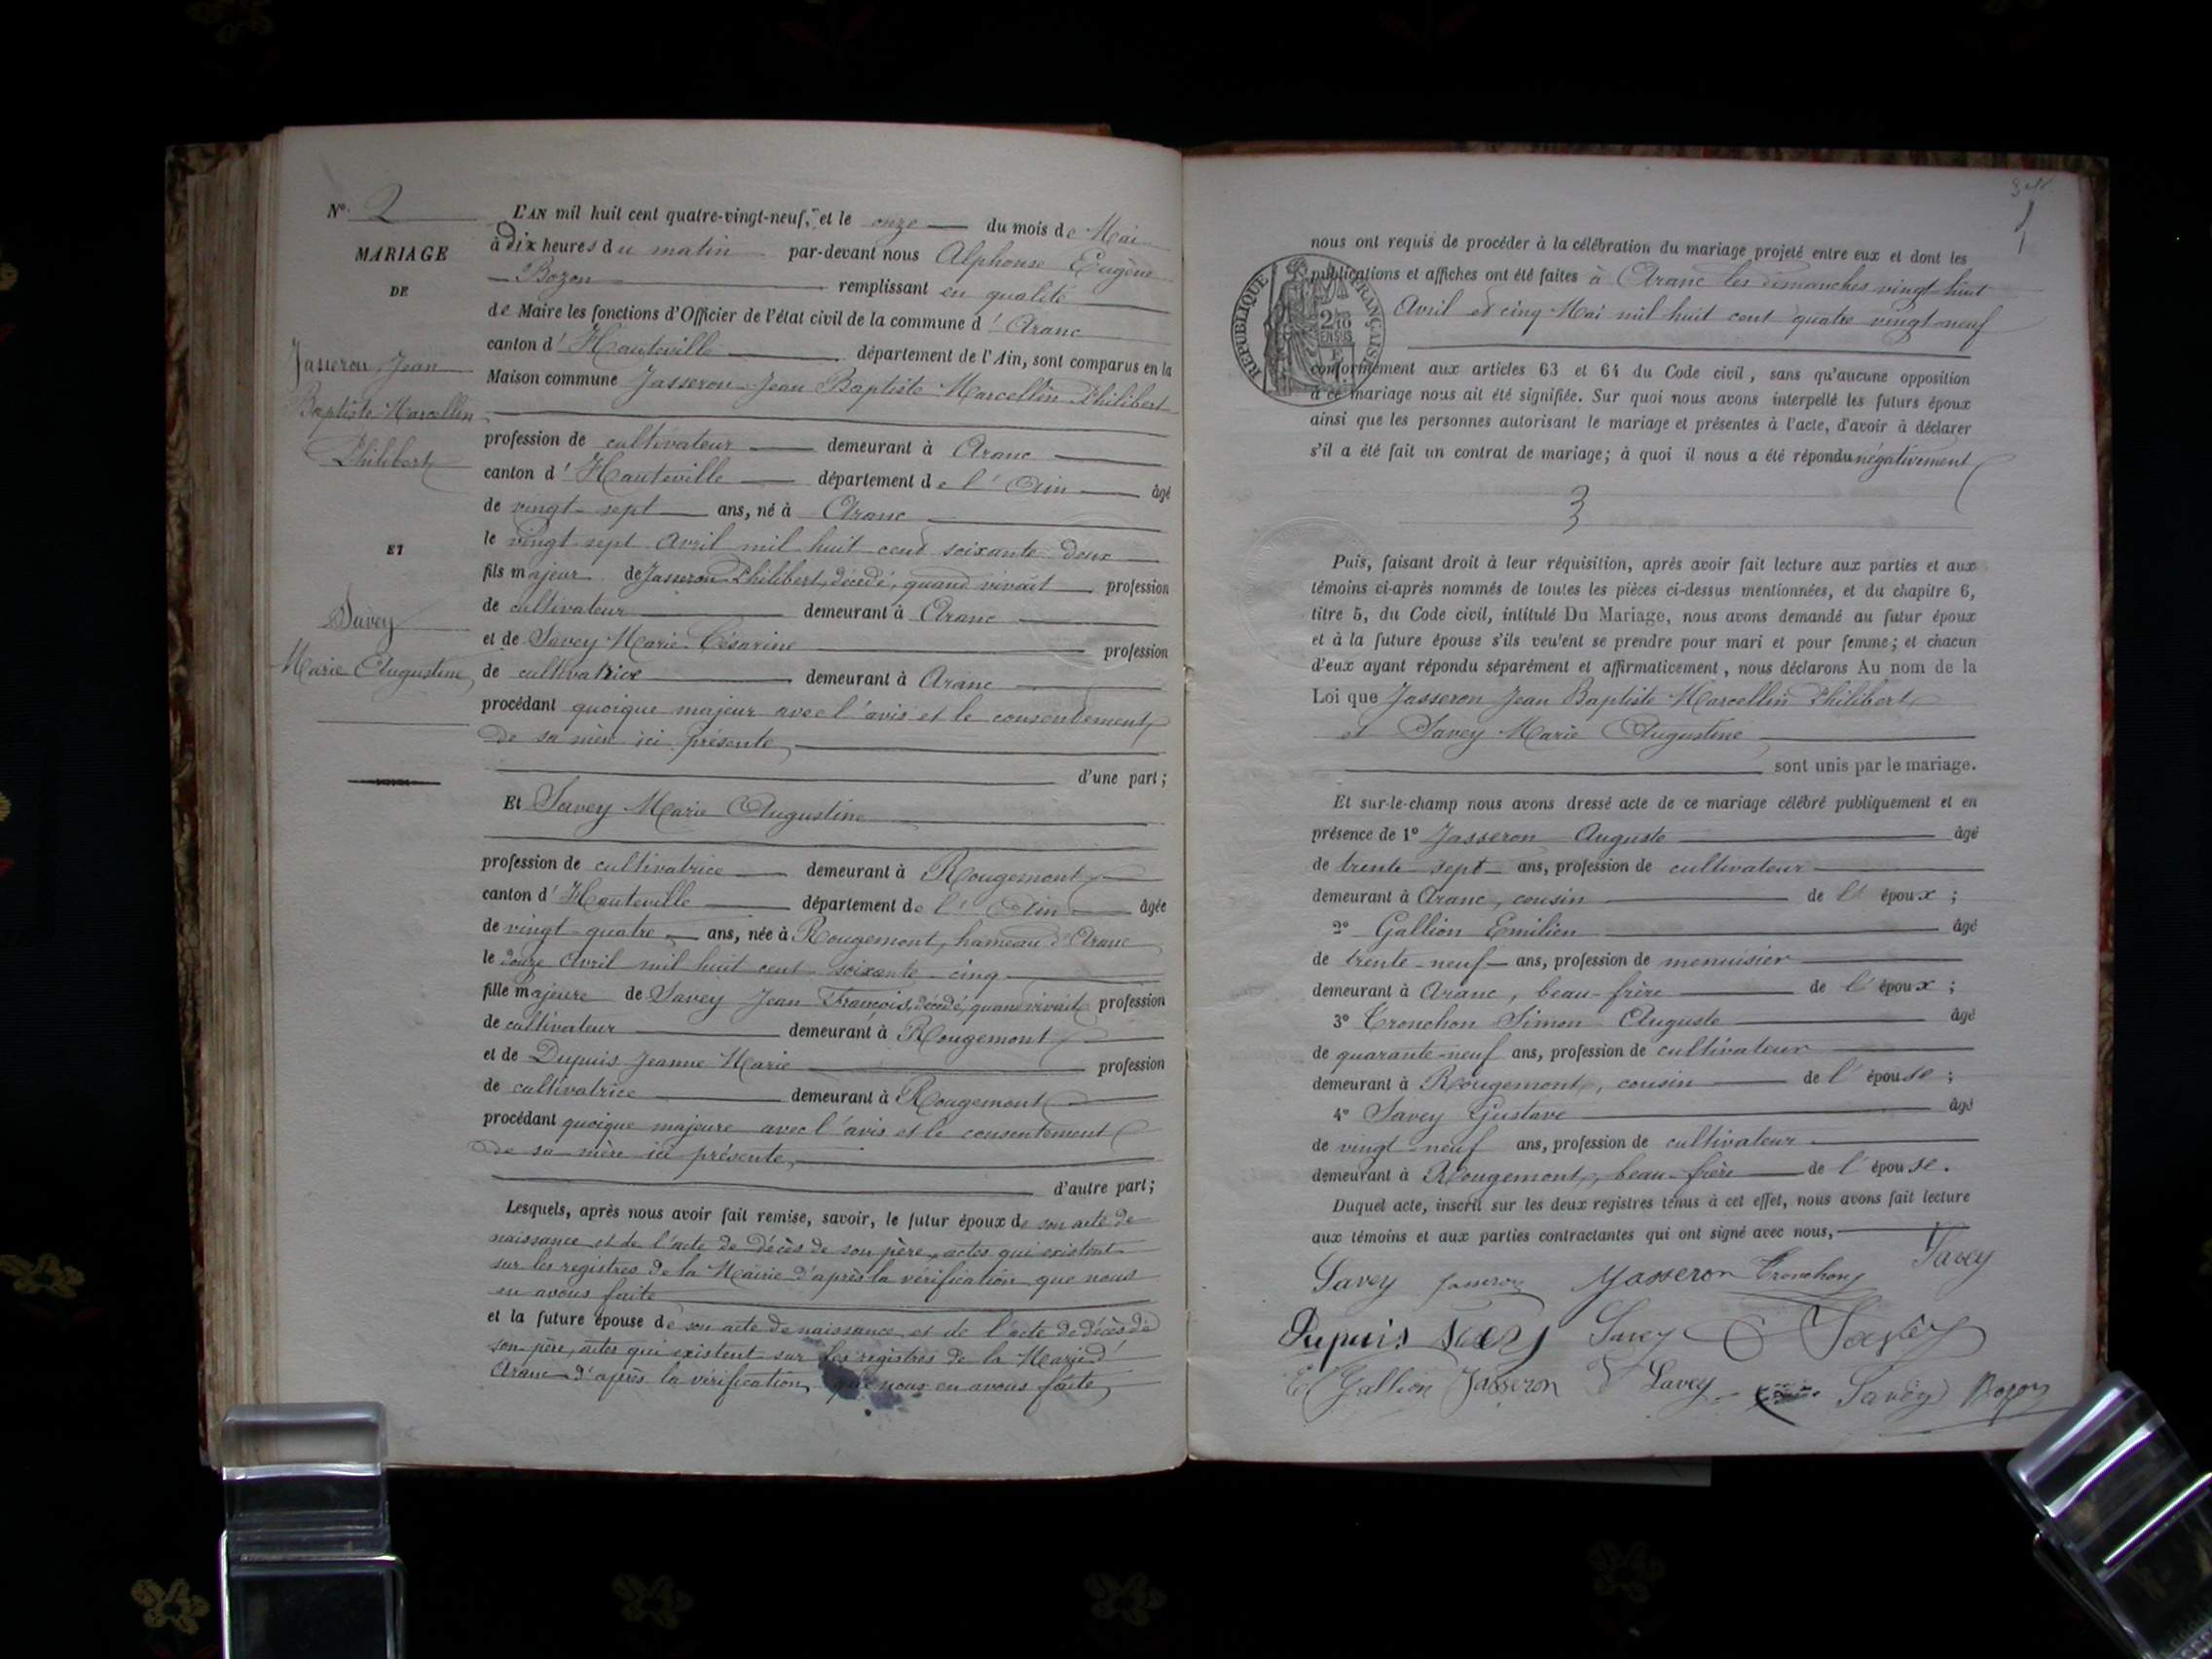 N° 2
MARIAGE
DE
Jasseron Jean
Baptiste Marcellin
Philibert
ET
Savey
Marie Augustine
L'AN mil huit cent quatre-vingt-neuf, et le onze du mois de Mai
à dix heures du matin par-devant nous Alphonse Eugène
Bozon remplissant en qualité
de Maire les fonctions d'Officier de l'état civil de la commune d'Aranc
canton d'Hauteville département de l'Ain, sont comparus en la
Maison commune Jasseron Jean Baptiste Marcellin Philibert
profession de cultivateur demeurant à Aranc
canton d'Hauteville département de l'Ain âgé
de vingt-sept ans, né à Aranc
le vingt sept Avril mil huit cent soixante deux
fils majeur de Jasseron Philibert, décédé, quand vivait profession
de cultivateur demeurant à Aranc
et de Savey Marie Césarine profession
de cultivatrice demeurant à Aranc
procédant quoique majeur avec l'avis et le consentement
de sa mère ici présente,
d'une part;
Et Savey Marie Augustine
profession de cultivatrice demeurant à Rougemont
canton d'Hauteville département de l'Ain âgée
de vingt-quatre ans, née à Rougemont, hameau d'Aranc
le douze Avril mil huit cent soixante-cinq
fille majeure de Savey Jean François, décédé, quand vivait profession
de cultivateur demeurant à Rougemont
et de Dupuis Jeanne Marie profession
de cultivatrice demeurant à Rougemont
procédant quoique majeure avec l'avis et le consentement
de sa mère ici présente,
d'autre part;
Lesquels, après nous avoir fait remise, savoir, le futur époux de son acte de
naissance et de l'acte de décès de son père, actes qui existent
sur les registres de la Mairie d'après la vérification que nous
en avons faite
et la future épouse de son acte de naissance et de l'acte de décès de
son père, actes qui existent sur les registres de la Mairie d'
Aranc d'après la vérification que nous en avons faite,
nous ont requis de procéder à la célébration du mariage projeté entre eux et dont les
publications et affiches ont été faites à Aranc les dimanches vingt huit
Avril et cinq Mai mil huit cent quatre vingt-neuf
RÉPUBLIQUE FRANÇAISE
conformément aux articles 63 et 64 du Code civil, sans qu'aucune opposition
à ce mariage nous ait été signifiée. Sur quoi nous avons interpellé les futurs époux
ainsi que les personnes autorisant le mariage et présentes à l'acte, d'avoir à déclarer
s'il a été fait un contrat de mariage; à quoi il nous a été répondu négativement
3
Puis, faisant droit à leur réquisition, après avoir fait lecture aux parties et aux
témoins ci-après nommés de toutes les pièces ci-dessus mentionnées, et du chapitre 6,
titre 5, du Code civil, intitulé Du Mariage, nous avons demandé au futur époux
et à la future épouse s'ils veulent se prendre pour mari et pour femme; et chacun
d'eux ayant répondu séparément et affirmativement, nous déclarons Au nom de la
Loi que Jasseron Jean Baptiste Marcellin Philibert
et Savey Marie Augustine
sont unis par le mariage.
Et sur-le-champ nous avons dressé acte de ce mariage célébré publiquement et en
présence de 1° Jasseron Auguste âgé
de trente-sept ans, profession de cultivateur
demeurant à Aranc, cousin de l'époux;
2° Gallion Emilien âgé
de trente-neuf ans, profession de menuisier
demeurant à Aranc, beau-frère de l'époux;
3° Tronchon Simon Auguste âgé
de quarante-neuf ans, profession de cultivateur
demeurant à Rougemont, cousin de l'épouse;
4° Savey Gustave âgé
de vingt-neuf ans, profession de cultivateur
demeurant à Rougemont, beau-frère de l'épouse.
Duquel acte, inscrit sur les deux registres tenus à cet effet, nous avons fait lecture
aux témoins et aux parties contractantes qui ont signé avec nous,
Savey Jasseron Jasseron Tronchon Savey
Dupuis Savey Savey Savey
E Gallion Jasseron Savey Savey Bozon